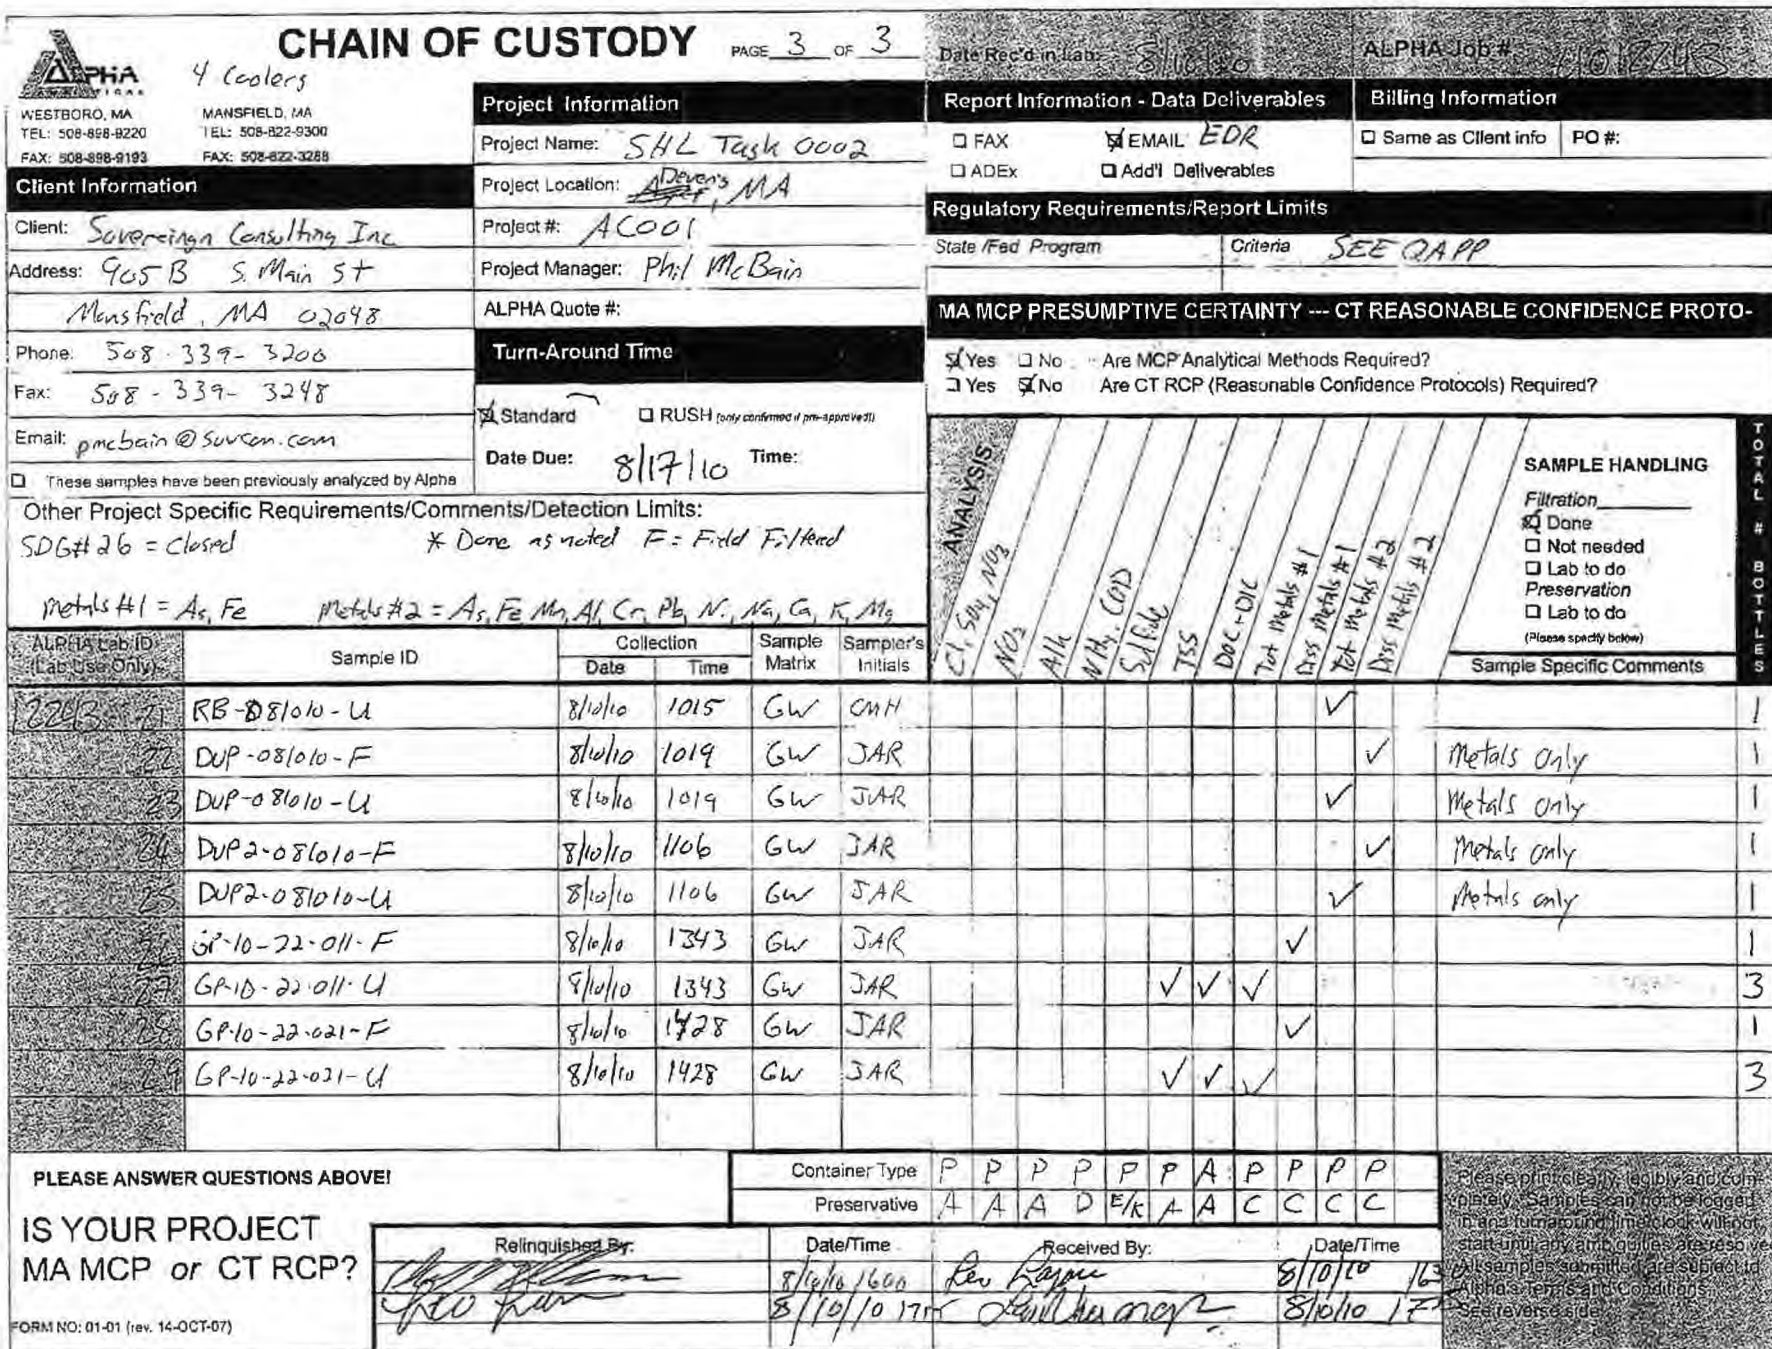 CHAIN OF CUSTODY PAGE 3 OF 3
Date Rec'd in Lab: 8/10/10 ALPHA Job #:
ALPHA
4 Coolers
WESTBORO, MA MANSFIELD, MA
TEL: 508-898-9220 TEL: 508-822-9300
FAX: 508-898-9193 FAX: 508-822-3288
Client Information
Client: Sovereingn Consulting Inc
Address: 905B S. Main St
Mansfield, MA 02048
Phone: 508-339-3200
Fax: 508-339-3248
Email: pmcbain@sovcon.com
These samples have been previously analyzed by Alpha
Project Information
Project Name: SHL Task 0002
Project Location: Devens, MA
Project #: AC001
Project Manager: Phil McBain
ALPHA Quote #:
Turn-Around Time
Standard RUSH (only confirmed if pre-approved!)
Date Due: 8/17/10 Time:
Report Information - Data Deliverables
FAX EMAIL EDR
ADEx Add'l Deliverables
Billing Information
Same as Client info PO #:
Regulatory Requirements/Report Limits
State /Fed Program Criteria SEE QAPP
MA MCP PRESUMPTIVE CERTAINTY --- CT REASONABLE CONFIDENCE PROTO-
Yes No Are MCP Analytical Methods Required?
Yes No Are CT RCP (Reasonable Confidence Protocols) Required?
Other Project Specific Requirements/Comments/Detection Limits:
SDG# 26 = Closed * Done as noted F = Field Filtered
Metals #1 = As, Fe Metals #2 = As, Fe, Mn, Al, Cr, Pb, Ni, Na, Ca, K, Mg
ANALYSIS
Cl, SO4, NO3
NO3
Alk
NH4, COD
Sulfide
TSS
DOC+DIC
Tot Metals #1
Diss Metals #1
Tot Metals #2
Diss Metals #2
SAMPLE HANDLING
Filtration
Done
Not needed
Lab to do
Preservation
Lab to do
(Please specify below)
Sample Specific Comments
TOTAL # BOTTLES
ALPHA Lab ID (Lab Use Only) Sample ID Collection Date Time Sample Matrix Sampler's Initials
12243 21 RB-081010-U 8/10/10 1015 GW CMH ✓ 1
22 DUP-081010-F 8/10/10 1019 GW JAR ✓ Metals Only 1
23 DUP-081010-U 8/10/10 1019 GW JAR ✓ Metals only 1
24 DUP2-081010-F 8/10/10 1106 GW JAR ✓ Metals only 1
25 DUP2-081010-U 8/10/10 1106 GW JAR ✓ Metals only 1
26 GP-10-22-011-F 8/10/10 1343 GW JAR ✓ 1
27 GP-10-22-011-U 8/10/10 1343 GW JAR ✓ ✓ ✓ 3
28 GP-10-22-021-F 8/10/10 1428 GW JAR ✓ 1
29 GP-10-22-021-U 8/10/10 1428 GW JAR ✓ ✓ ✓ 3
PLEASE ANSWER QUESTIONS ABOVE!
Container Type P P P P P P A P P P P
Preservative A A A D E/K A A C C C C
IS YOUR PROJECT
MA MCP or CT RCP?
Relinquished By: Date/Time Received By: Date/Time
8/10/10 1600 8/10/10
8/10/10 8/10/10
FORM NO: 01-01 (rev. 14-OCT-07)
Please print clearly, legibly and com-
pletely. Samples can not be logged
in and turnaround time clock will not
start until any ambiguities are resolve
All samples submitted are subject to
Alpha's Terms and Conditions.
See reverse side.